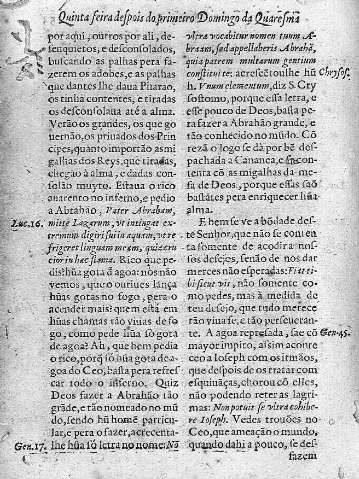 Quinta feira despois do primeiro Domingo da Quaresma
por aqui, outros por ali, de-
senquietos, e desconsolados,
buscando as palhas pera fa-
zerem os adobes, e as palhas
que dantes lhe daua Pharao,
os tinha contentes, e tiradas
os desconsolaua atè a alma.
Verão os grandes, os que go
uernão, os priuados dos Prin-
cipes, quanto importão as mi
galhas dos Reys, que tiradas,
chegão à alma, e dadas con-
solão muyto. Estaua o rico
auarento no inferno, e pedio
a Abrahão, Pater Abraham,
Luc.16.
mitte Lazarum, vt intingat ex-
tremum digiti sui in aquam, vt re-
frigeret linguam meam, quia cru
cior in hac flama. Rico que pe-
dis hũa gota d'agoa: nòs não
vemos, que o ouriues lança
hũas gotas no fogo, pera o
acender mais: quem està em
hũas chamas tão viuas de fo-
go, como pede hũa sò gota
de agoa? Ah, que bem pedia
o rico, porq̃ hũa sò gota de a-
goa do Ceo, basta pera refres
car todo o inferno. Quiz
Deos fazer a Abrahão tão
grãde, e tão nomeado no mũ
do, sendo hũ home particu-
lar, e pera o fazer, acrecenta-
Gen.17.
lhe hũa sò letra no nome: Nõ
vltra vocabitur nomen tuum A-
braam, sed appellaberis Abrahã,
quia patrem multarum gentium
constitui te: acrescẽtoulhe hũ
Chrysos.
h. Vnum elementum, diz S. Cry
sostomo, porque essa letra, e
esse pouco de Deos, basta pe-
ra fazer a Abrahão grande, e
tão conhecido no mũdo. Cõ
rezão logo se dà por bẽ des-
pachada a Cananea, e se con-
tenta cõ as migalhas da me-
sa de Deos, porque essas saõ
bastãtes pera enriquecer hũa
alma.
E bem se ve a bõdade des-
te Senhor, que não se conten
ta somente de acodir a nos-
sos desejos, senão de nos dar
merces não esperadas: Fiat ti-
bi sicut vis, não somente co-
mo pedes, mas à medida de
teu desejo, que tudo merece
tão viua fe, e tão perseueran-
te. A agoa represada, sae cõ
Gen.45.
mayor impito, assim aconte
ceo a Ioseph com os irmãos,
que despois de os tratar com
esquiuaças, chorou cõ elles,
não podendo reter as lagri-
mas: Non potuit se vltra cohibe-
re Ioseph. Vedes trouões no
Ceo, que ameação o mundo,
quando dahi a pouco, se des-
fazem